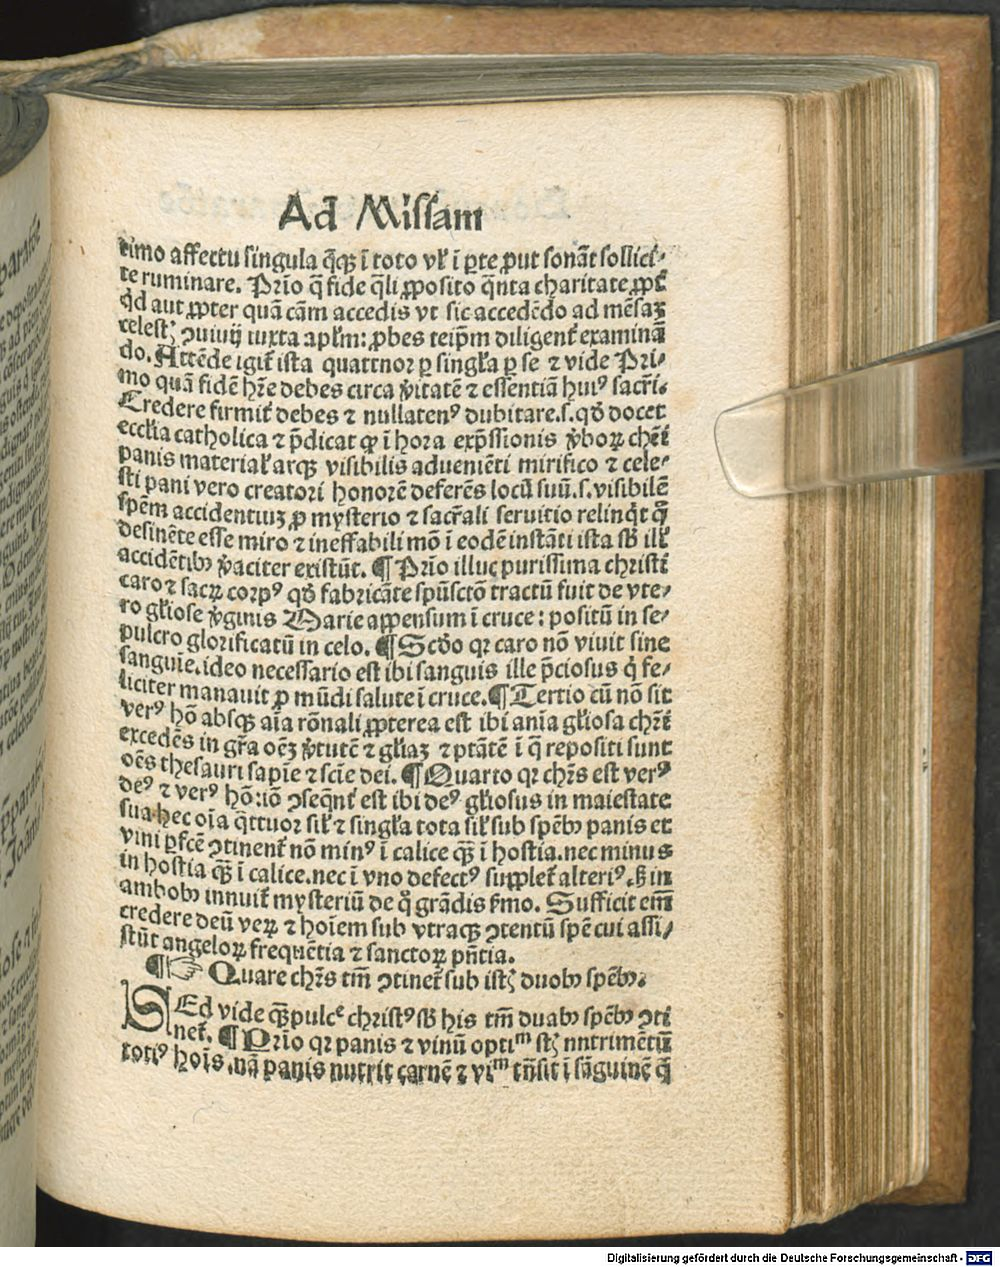 Ad Missam
timo affectu singula q̄qꝫ ī toto vł ī ꝑte ꝓut sonāt sollici⸗
te ruminare. Prīo q̄ fide q̄li ꝓposito q̄nta charitate ꝓpt̄
q̇d aut ꝓpter quā cām accedis vt sic accedēdo ad mēsaꝫ
celestꝫ ꝯuiuij iuxta apłm: ꝓbes teip̄m diligent̄ examinā
do. Attēde igit̄ ista quattnor ꝑ singła ꝑ se ⁊ vide Pri⸗
mo quā fidē hr̄e debes circa v̄itatē ⁊ essentiā huiꝰ sacr̄i.
Credere firmit̄ debes ⁊ nullatenꝰ dubitare.s.qđ docet
eccłia catholica ⁊ p̄dicat ꝙ ī hora exp̄ssionis v̄boꝝ chr̄i
panis material̄ atqꝫ visibilis adueniēti mirifico ⁊ cele⸗
sti pani vero creatori honorē deferēs locū suū.s.visibilē
spēm accidentiuꝫ ꝓ mysterio ⁊ sacr̄ali seruitio relinq̇t q̄
desinēte esse miro ⁊ ineffabili mō ī eodē instāti ista sб ill̄
accidētibꝰ v̄aciter existūt. ¶ Prīo illuc purissima christi
caro ⁊ sacꝝ corpꝰ qđ fabricāte spūsctō tractū fuit de vte⸗
ro głiose v̄ginis Marie appensum ī cruce: positū in se⸗
pulcro glorificatū in celo. ¶ Scđo qꝛ caro nō viuit sine
sanguie.ideo necessario est ibi sanguis ille p̄ciosus q̇ fe⸗
liciter manauit ꝓ mūdi salute ī cruce. ¶ Tertio cū nō sit
verꝰ hō absqꝫ aīa rōnali ꝓpterea est ibi anīa głiosa chr̄i
excedēs in gr̄a oēꝫ v̄tutē ⁊ głiaꝫ ⁊ ptātē ī q̄ repositi sunt
oēs thesauri sapīe ⁊ scīe dei. ¶ Quarto qꝛ chr̄s est verꝰ
deꝰ ⁊ verꝰ hō:iō ꝯseq̄nt̄ est ibi deꝰ głiosus in maiestate
sua hec oīa q̄ttuor sił ⁊ singła tota sił sub spēbꝰ panis et
vini ꝑfcē ꝯtinent̄ nō minꝰ ī calice q̄ꝫ ī hostia.nec minus
in hostia q̄ꝫ ī calice.nec ī vno defectꝰ supplet̄ alteriꝰ.sꝫ in
ambobꝰ innuit̄ mysteriū de q̊ grādis s̄mo. Sufficit em̄
credere deū veꝝ ⁊ hoīem sub vtraqꝫ ꝯtentū spē cui assi⸗
stūt angeloꝝ frequētia ⁊ sanctoꝝ pn̄tia.
¶☞ Quare chr̄s tm̄ ꝯtinet̄ sub istꝫ duobꝰ spēbꝰ.
SEd vide q̄ꝫ pulcᵉ christꝰ sб his tm̄ duabꝰ spēbꝰ ꝯti
net̄. ¶ Prīo qꝛ panis ⁊ vinū optiᵐ stꝫ nntrimētū
totiꝰ hoīs.nā panis nutrit carnē ⁊ viᵐ trn̄sit ī sāguinē q̄
Digitalisierung gefördert durch die Deutsche Forschungsgemeinschaft - DFG